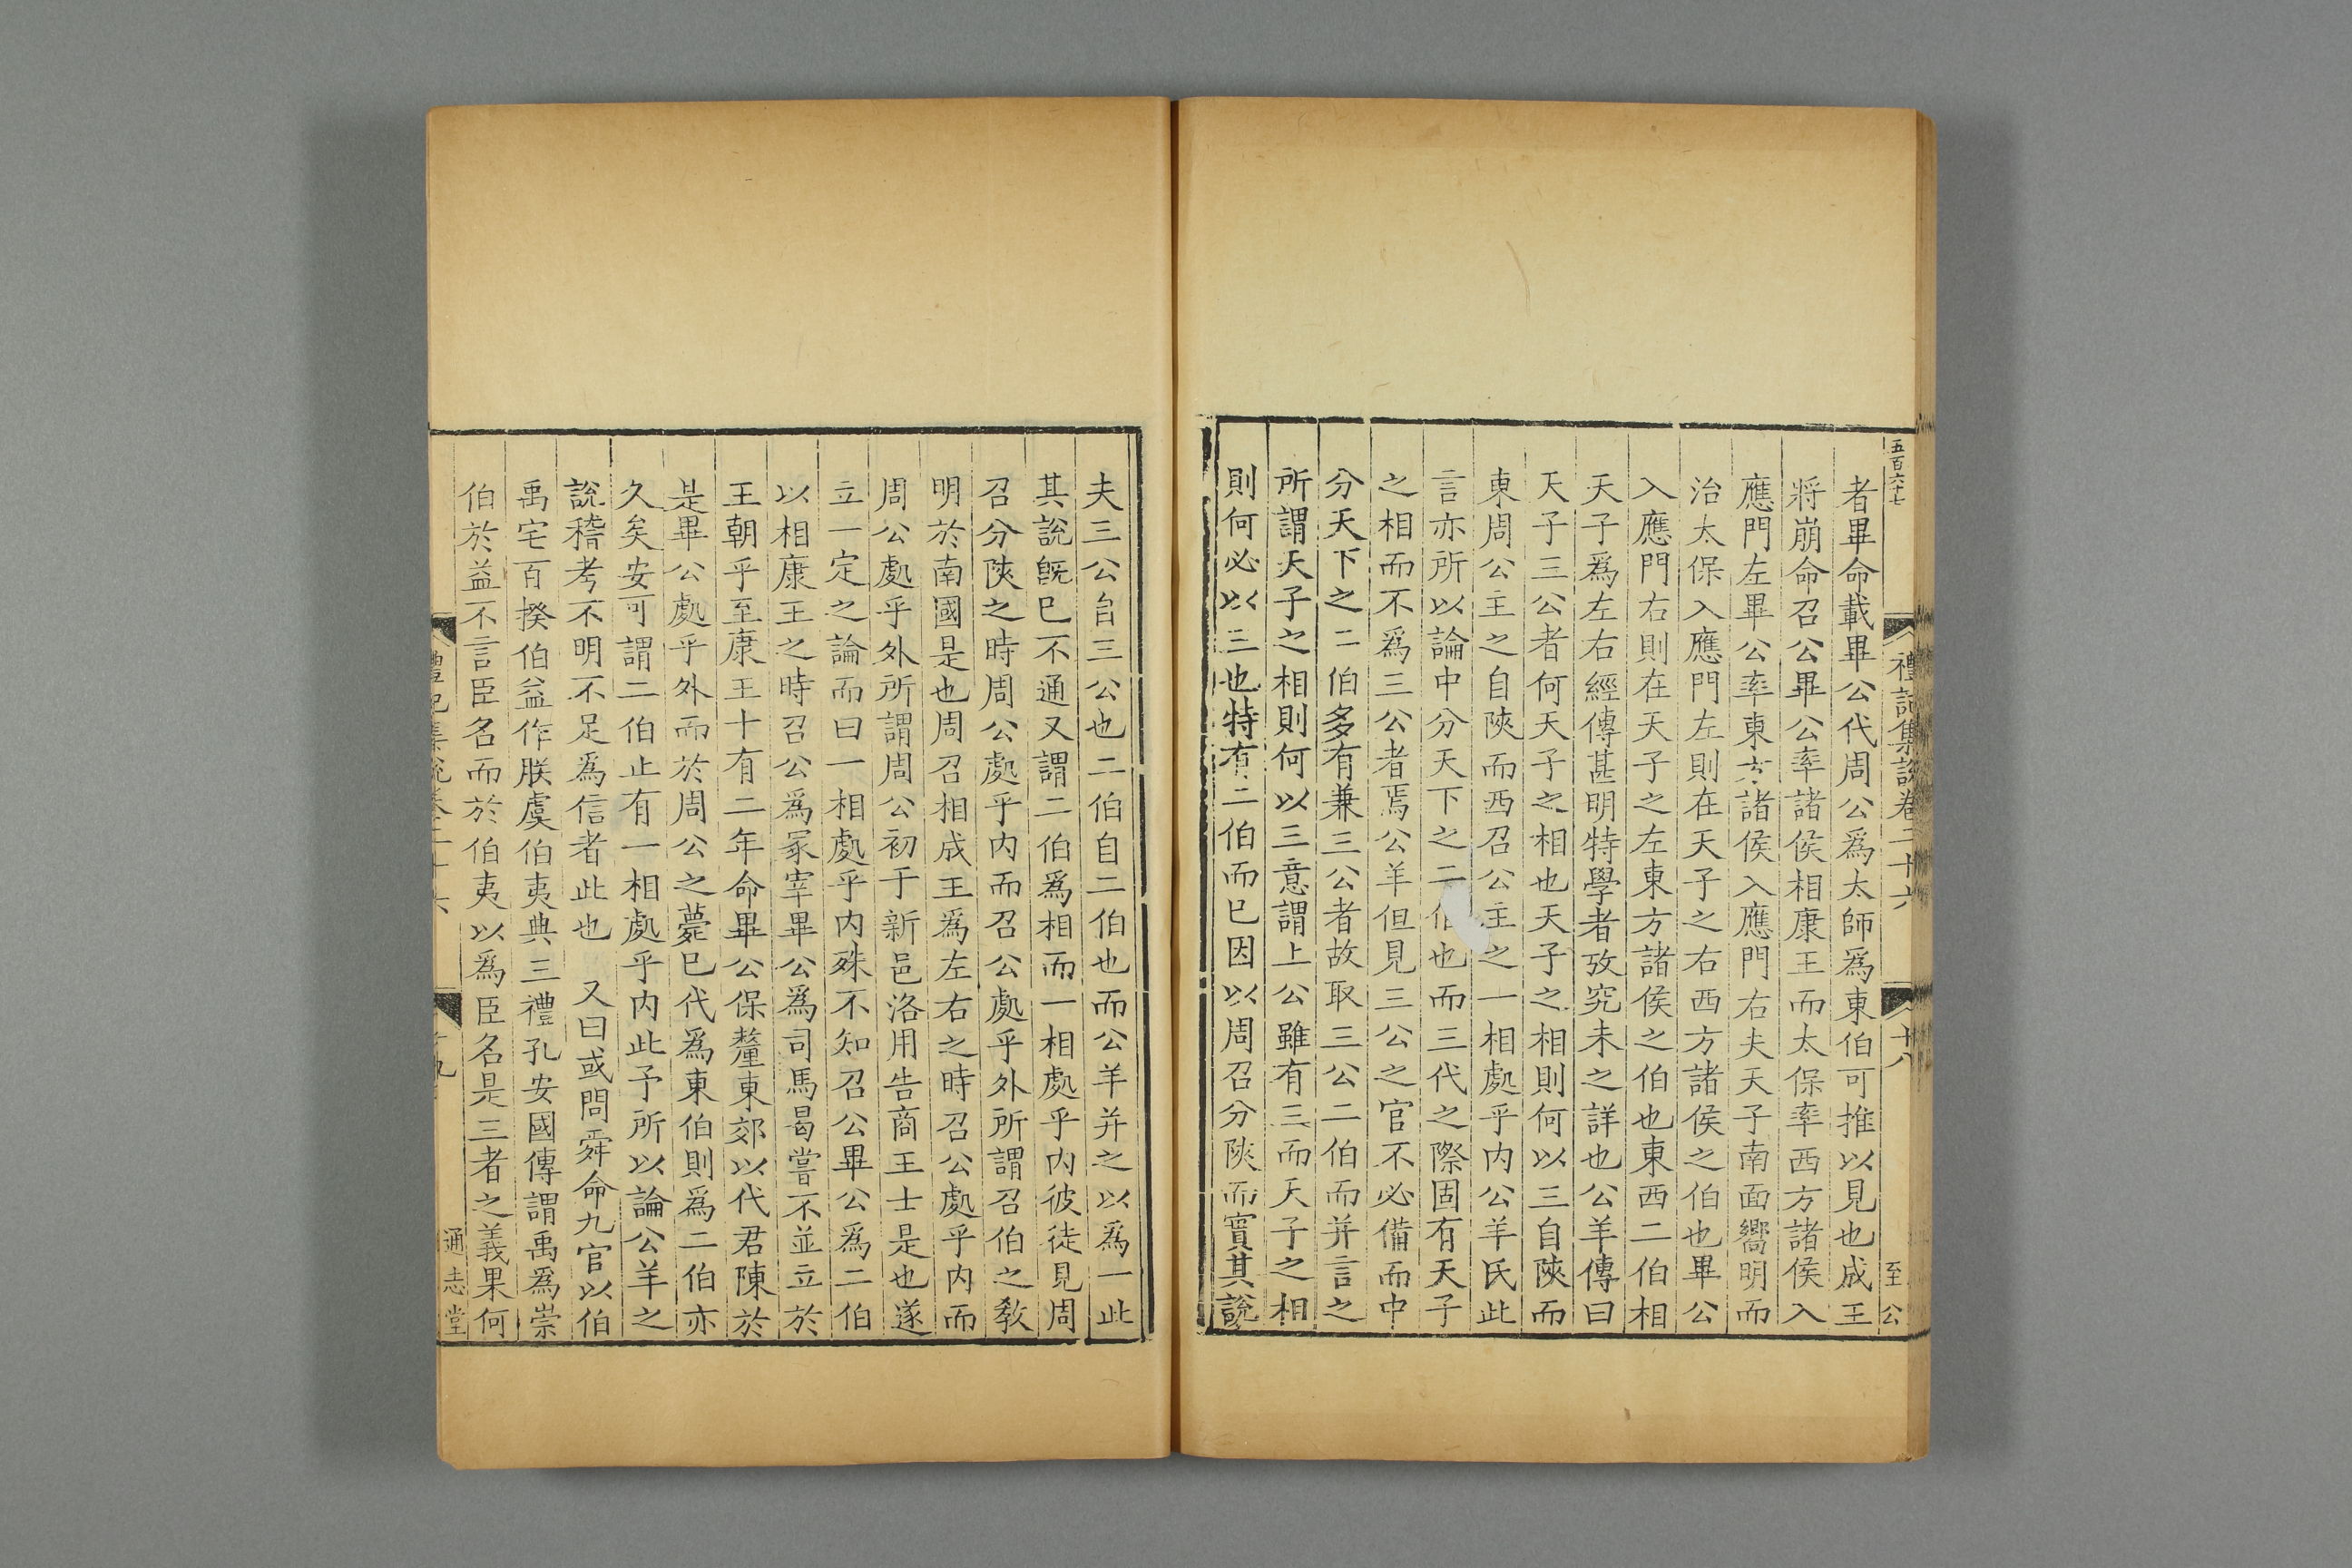 五百六十七
禮記集說卷二十六
十八
至公
者畢命載畢公代周公爲太師爲東伯可推以見也成王
將崩命召公畢公率諸侯相康王而太保率西方諸侯入
應門左畢公率東方諸侯入應門右夫天子南面嚮明而
治太保入應門左則在天子之右西方諸侯之伯也畢公
入應門右則在天子之左東方諸侯之伯也東西二伯相
天子爲左右經傳甚明特學者攷究未之詳也公羊傳曰
天子三公者何天子之相也天子之相則何以三自陝而
東周公主之自陝而西召公主之一相處乎内公羊氏此
言亦所以論中分天下之二伯也而三代之際固有天子
之相而不爲三公者焉公羊但見三公之官不必備而中
分天下之二伯多有兼三公者故取三公二伯而并言之
所謂天子之相則何以三意謂上公雖有三而天子之相
則何必以三也特有二伯而已因以周召分陝而實其說
夫三公自三公也二伯自二伯也而公羊并之以爲一此
其說旣已不通又謂二伯爲相而一相處乎内彼徒見周
召分陝之時周公處乎内而召公處乎外所謂召伯之敎
明於南國是也周召相成王爲左右之時召公處乎内而
周公處乎外所謂周公初于新邑洛用告商王士是也遂
立一定之論而曰一相處乎内殊不知召公畢公爲二伯
以相康王之時召公爲冢宰畢公爲司馬曷嘗不並立於
王朝乎至康王十有二年命畢公保釐東郊以代君陳於
是畢公處乎外而於周公之薨已代爲東伯則爲二伯亦
久矣安可謂二伯止有一相處乎内此予所以論公羊之
說稽考不明不足爲信者此也　又曰或問舜命九官以伯
禹宅百揆伯益作朕虞伯夷典三禮孔安國傳謂禹爲崇
伯於益不言臣名而於伯夷以爲臣名是三者之義果何
禮記集說卷二十六
十九
通志堂